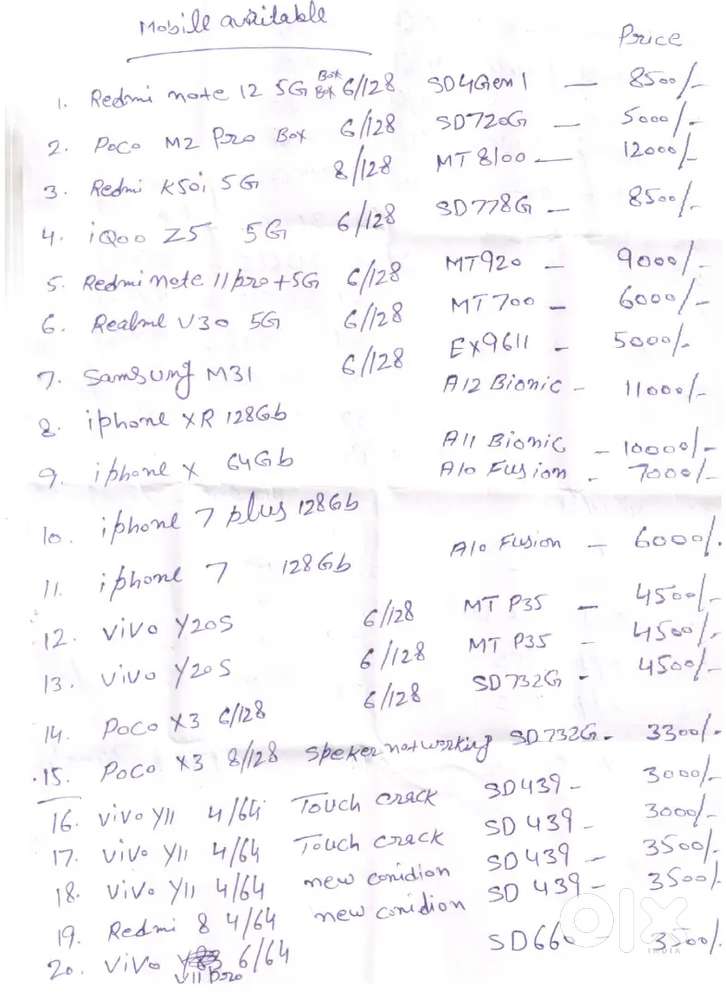 Mobile available
Price
1. Redmi note 12 5G Box Box 6/128 SD4Gen1 — 8500/-
2. Poco M2 Pro Box 6/128 SD720G — 5000/-
3. Redmi K50i 5G 8/128 MT8100 — 12000/-
4. iQoo Z5 5G 6/128 SD778G — 8500/-
5. Redmi note 11 pro+5G 6/128 MT920 — 9000/-
6. Realme V30 5G 6/128 MT700 — 6000/-
7. Samsung M31 6/128 EX9611 — 5000/-
8. iphone XR 128Gb A12 Bionic — 11000/-
9. iphone X 64Gb A11 Bionic — 10000/-
10. iphone 7 plus 128Gb A10 Fusion - 7000/-
11. iphone 7 128Gb A10 Fusion — 6000/-
12. vivo Y20S 6/128 MT P35 — 4500/-
13. vivo Y20S 6/128 MT P35 — 4500/-
14. Poco X3 6/128 6/128 SD732G - 4500/-
15. Poco X3 8/128 Speker not working SD732G - 3300/-
16. vivo Y11 4/64 Touch crack SD439 - 3000/-
17. vivo Y11 4/64 Touch crack SD439 - 3000/-
18. vivo Y11 4/64 new conidion SD439 - 3500/-
19. Redmi 8 4/64 new conidion SD439 - 3500/-
20. vivo V11 Pro 6/64 SD660 3500/-
olx
INDIA